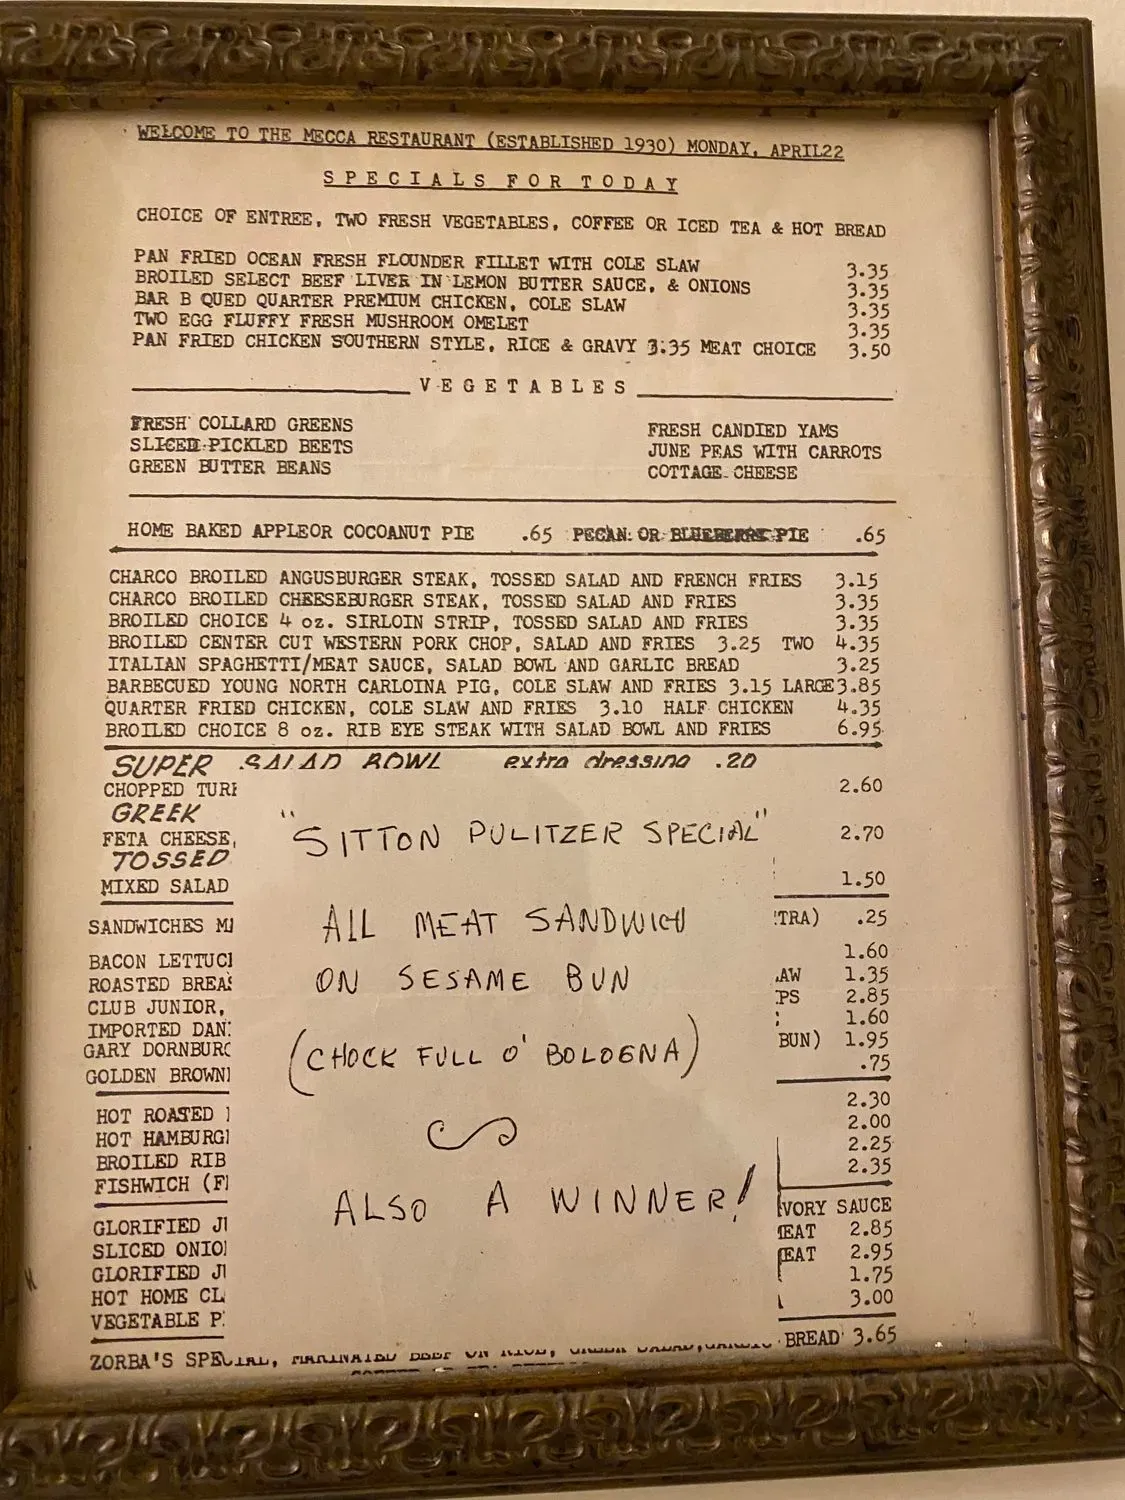 WELCOME TO THE MECCA RESTAURANT (ESTABLISHED 1930) MONDAY, APRIL22
SPECIALS FOR TODAY
CHOICE OF ENTREE, TWO FRESH VEGETABLES, COFFEE OR ICED TEA & HOT BREAD
PAN FRIED OCEAN FRESH FLOUNDER FILLET WITH COLE SLAW 3.35
BROILED SELECT BEEF LIVER IN LEMON BUTTER SAUCE, & ONIONS 3.35
BAR B QUED QUARTER PREMIUM CHICKEN, COLE SLAW 3.35
TWO EGG FLUFFY FRESH MUSHROOM OMELET 3.35
PAN FRIED CHICKEN SOUTHERN STYLE, RICE & GRAVY 3.35 MEAT CHOICE 3.50
VEGETABLES
FRESH COLLARD GREENS FRESH CANDIED YAMS
SLICED PICKLED BEETS JUNE PEAS WITH CARROTS
GREEN BUTTER BEANS COTTAGE CHEESE
HOME BAKED APPLEOR COCOANUT PIE .65 PECAN OR BLUEBERRY PIE .65
CHARCO BROILED ANGUSBURGER STEAK, TOSSED SALAD AND FRENCH FRIES 3.15
CHARCO BROILED CHEESEBURGER STEAK, TOSSED SALAD AND FRIES 3.35
BROILED CHOICE 4 oz. SIRLOIN STRIP, TOSSED SALAD AND FRIES 3.35
BROILED CENTER CUT WESTERN PORK CHOP, SALAD AND FRIES 3.25 TWO 4.35
ITALIAN SPAGHETTI/MEAT SAUCE, SALAD BOWL AND GARLIC BREAD 3.25
BARBECUED YOUNG NORTH CARLOINA PIG, COLE SLAW AND FRIES 3.15 LARGE 3.85
QUARTER FRIED CHICKEN, COLE SLAW AND FRIES 3.10 HALF CHICKEN 4.35
BROILED CHOICE 8 oz. RIB EYE STEAK WITH SALAD BOWL AND FRIES 6.95
SUPER SALAD BOWL extra dressing .20
CHOPPED TUR 2.60
GREEK
FETA CHEESE, 2.70
TOSSED
MIXED SALAD 1.50
SANDWICHES TRA) .25
BACON LETTUC 1.60
ROASTED BREAS AW 1.35
CLUB JUNIOR, PS 2.85
IMPORTED DAN 1.60
GARY DORNBURG BUN) 1.95
GOLDEN BROWN .75
HOT ROASTED 2.30
HOT HAMBURG 2.00
BROILED RIB 2.25
FISHWICH (F 2.35
VORY SAUCE
GLORIFIED EAT 2.85
SLICED ONIO EAT 2.95
GLORIFIED 1.75
HOT HOME CL 3.00
VEGETABLE P
ZORBA'S SPECIAL, MARINATED BEEF ON RICE, GREEK SALAD, GARLIC BREAD 3.65
"SITTON PULITZER SPECIAL"
ALL MEAT SANDWICH
ON SESAME BUN
(CHOCK FULL O' BOLOGNA)
ALSO A WINNER!